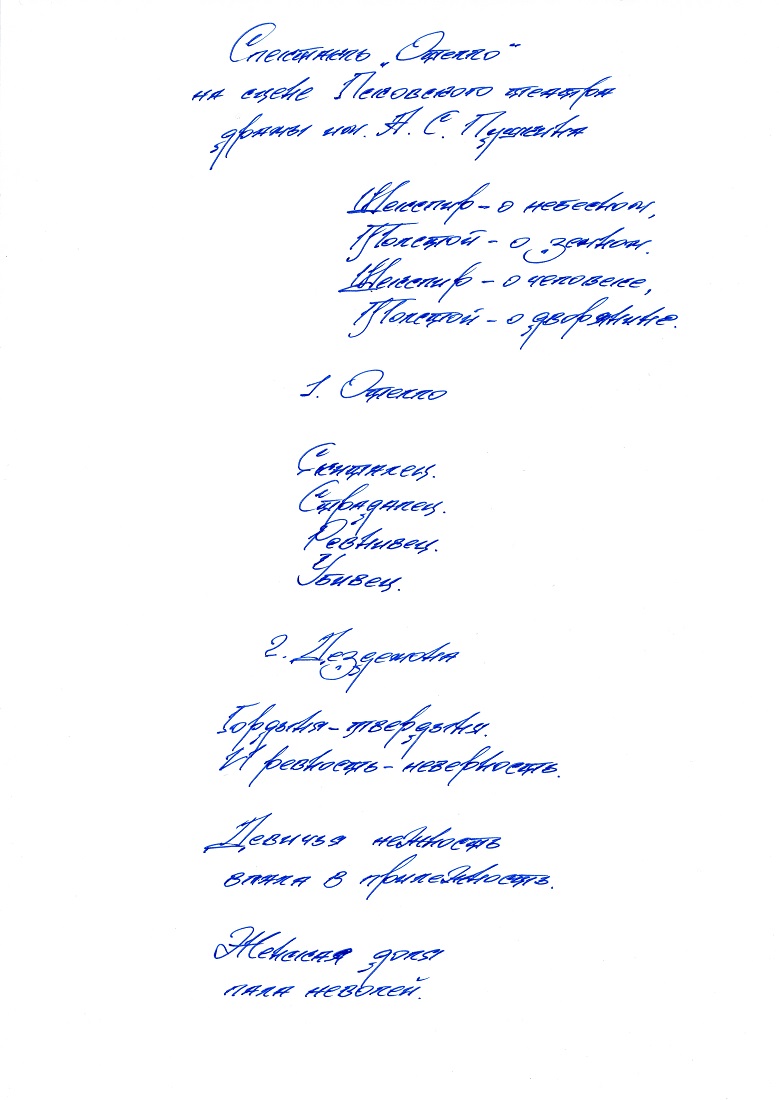 Спектакль „Отелло“
на сцене Псковского театра
драмы им. А. С. Пушкина
Шекспир – о небесном,
Толстой – о земном.
Шекспир – о человеке,
Толстой – о дворянине.
1. Отелло
Скиталец.
Страдалец.
Ревнивец.
Убивец.
2. Дездемона
Гордыня – твердыня.
И ревность – неверность.
Девичья нежность
впала в прилежность.
Женская доля
пала неволей.